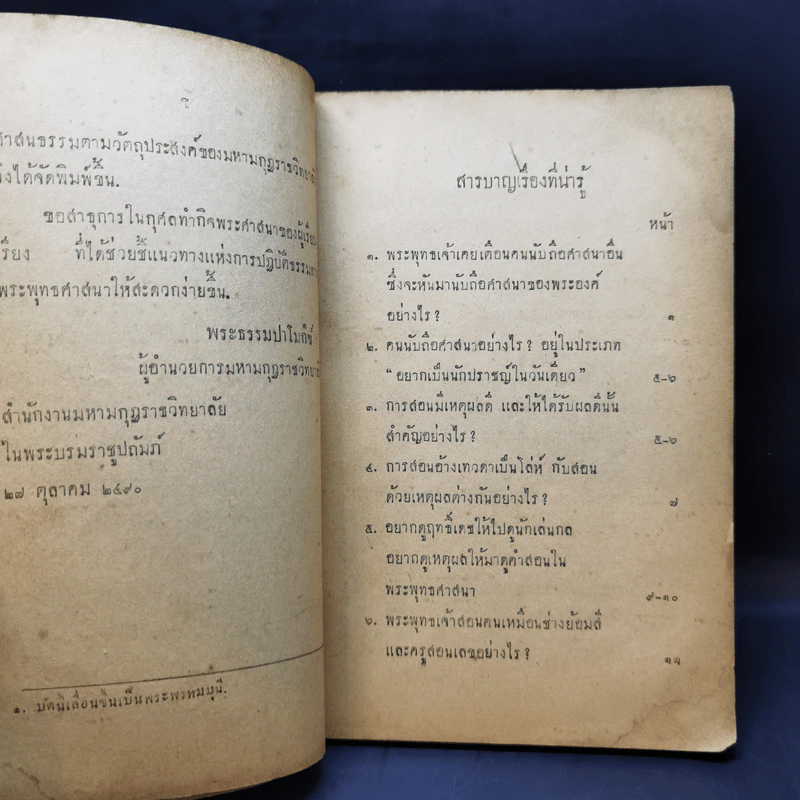 ศาสนธรรมตามวัตถุประสงค์ของมหามกุฏราชวิทยาลัย
ได้จัดพิมพ์ขึ้น.
ขอสาธุการในกุศลทำกิจพระศาสนาของผู้เรียบ
เรียง ที่ได้ช่วยชี้แนวทางแห่งการปฏิบัติธรรม
พระพุทธศาสนาให้สะดวกง่ายขึ้น.
พระธรรมปาโมกข์ ๑
ผู้อำนวยการมหามกุฏราชวิทยาลัย
สำนักงานมหามกุฏราชวิทยาลัย
ในพระบรมราชูปถัมภ์
๒๗ ตุลาคม ๒๔๙๐
๑. บัดนี้เลื่อนขึ้นเป็นพระพรหมมุนี.
สารบาญเรื่องที่น่ารู้
หน้า
๑. พระพุทธเจ้าเคยเตือนคนนับถือศาสนาอื่น
ซึ่งจะหันมานับถือศาสนาของพระองค์
อย่างไร ? ๑
๒. คนนับถือศาสนาอย่างไร ? อยู่ในประเภท
“อยากเป็นนักปราชญ์ในวันเดียว” ๕-๖
๓. การสอนมีเหตุผลดี และให้ได้รับผลดีนั้น
สำคัญอย่างไร ? ๕-๖
๔. การสอนอ้างเทวดาเป็นโล่ห์ กับสอน
ด้วยเหตุผลต่างกันอย่างไร ? ๗
๕. อยากดูฤทธิ์เดชให้ไปดูนักเล่นกล
อยากดูเหตุผลให้มาดูคำสอนใน
พระพุทธศาสนา ๙-๑๐
๖. พระพุทธเจ้าสอนคนเหมือนช่างย้อมสี
และครูสอนเลขอย่างไร ? ๑๑